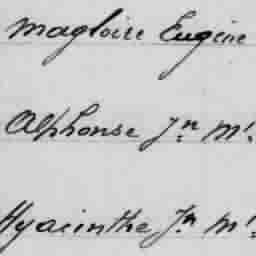 Magloire Eugène
Alphonse Jn Mie
Hyacinthe Jn Mie